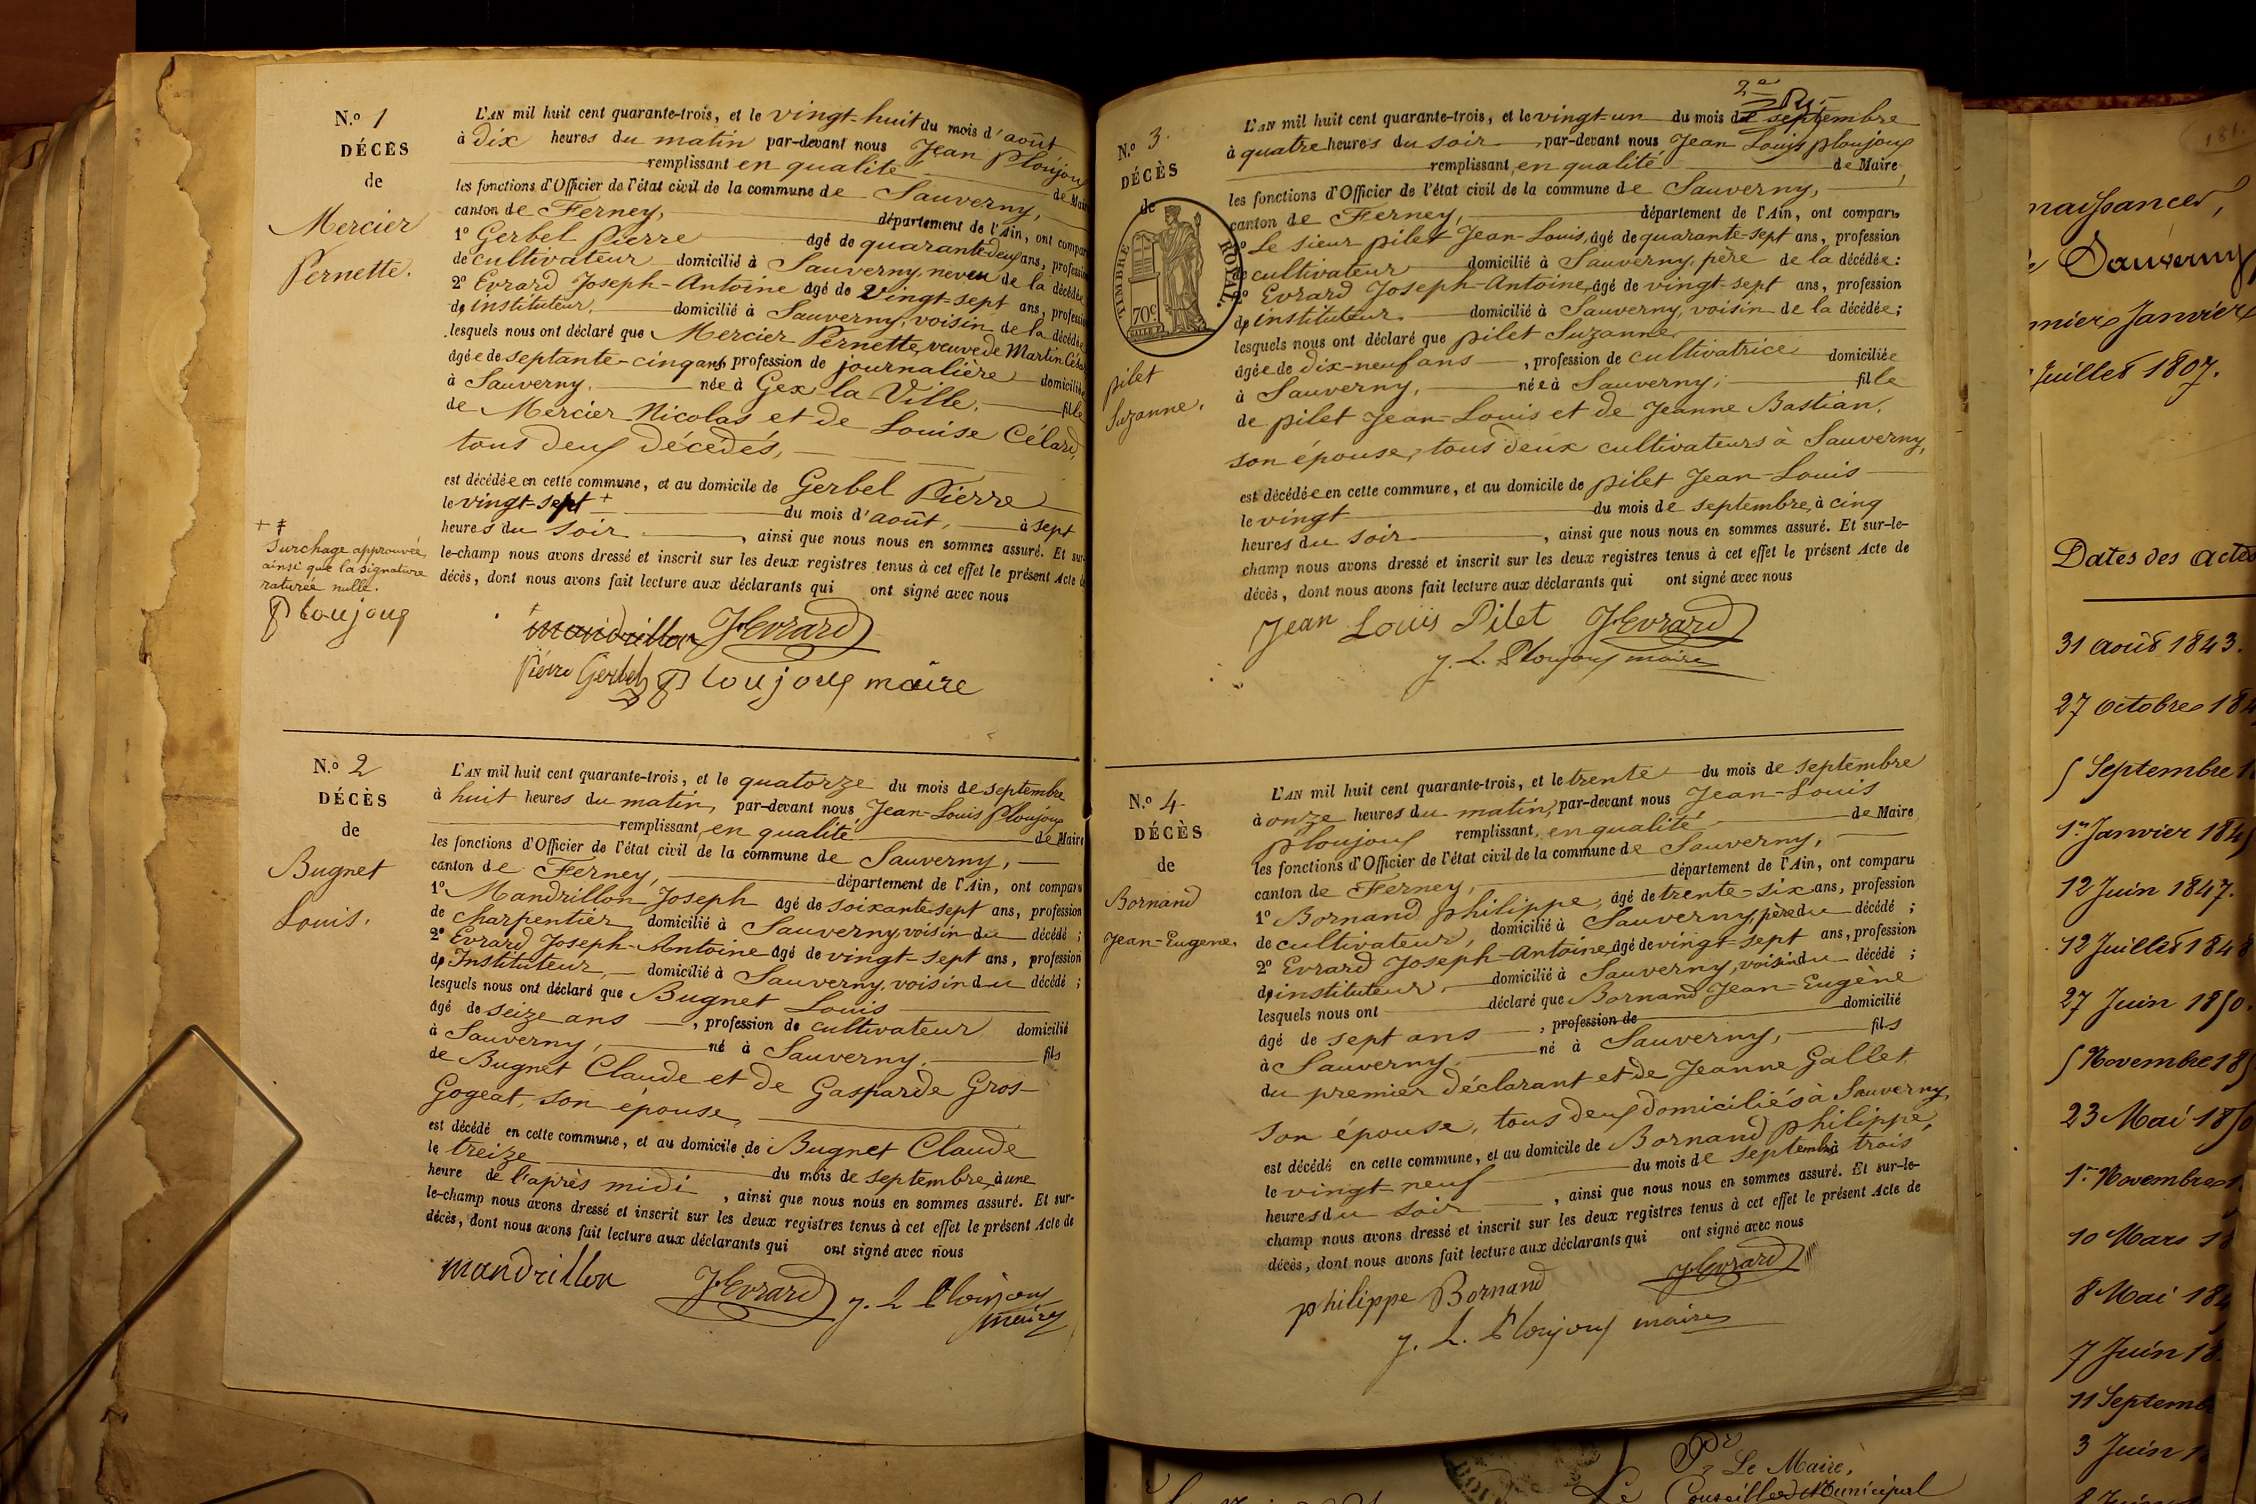 N.º 1
DÉCÈS
de
Mercier
Pernette.
L'AN mil huit cent quarante-trois, et le vingt-huit du mois d'août
à dix heures du matin par-devant nous Jean Ploujoux
remplissant en qualité de Maire
les fonctions d'Officier de l'état civil de la commune de Sauverny,
canton de Ferney, département de l'Ain, ont comparu
1º Gerbel Pierre âgé de quarante-deux ans, profession
de cultivateur domicilié à Sauverny, neveu de la décédée
2º Evrard Joseph-Antoine âgé de vingt-sept ans, profession
de instituteur, domicilié à Sauverny, voisin de la décédée
lesquels nous ont déclaré que Mercier Pernette, veuve de Martin
âgée de septante-cinq ans, profession de journalière domiciliée
à Sauverny, née à Gex la Ville, fille
de Mercier Nicolas et de Louise Célard,
tous deux décédés,
est décédée en cette commune, et au domicile de Gerbel Pierre
le vingt-sept + du mois d'août, à sept
heures du soir, ainsi que nous nous en sommes assuré. Et sur-
le-champ nous avons dressé et inscrit sur les deux registres tenus à cet effet le présent Acte de
décès, dont nous avons fait lecture aux déclarants qui ont signé avec nous
+ ‡
Surchage approuvée,
ainsi que la signature
raturée nulle.
Ploujoux
mandrillon JEvrard
Pierre Gerbel Ploujoux maire
N.º 2
DÉCÈS
de
Bugnet
Louis.
L'AN mil huit cent quarante-trois, et le quatorze du mois de septembre
à huit heures du matin, par-devant nous Jean-Louis Ploujoux
remplissant en qualité de Maire
les fonctions d'Officier de l'état civil de la commune de Sauverny,
canton de Ferney, département de l'Ain, ont comparu
1º Mandrillon Joseph âgé de soixante-sept ans, profession
de charpentier domicilié à Sauverny, voisin du décédé ;
2º Evrard Joseph-Antoine âgé de vingt-sept ans, profession
de Instituteur, domicilié à Sauverny, voisin du décédé ;
lesquels nous ont déclaré que Bugnet Louis
âgé de seize ans, profession de cultivateur domicilié
à Sauverny, né à Sauverny, fils
de Bugnet Claude et de Gasparde Gros-
Gogeat, son épouse,
est décédé en cette commune, et au domicile de Bugnet Claude
le treize du mois de septembre, à une
heure de l'après midi, ainsi que nous nous en sommes assuré. Et sur-
le-champ nous avons dressé et inscrit sur les deux registres tenus à cet effet le présent Acte de
décès, dont nous avons fait lecture aux déclarants qui ont signé avec nous
mandrillon JEvrard J. L. Ploujoux
maire
2e
N.º 3.
DÉCÈS
de
TIMBRE ROYAL.
70c
pilet
Suzanne.
L'AN mil huit cent quarante-trois, et le vingt-un du mois de septembre
à quatre heures du soir, par-devant nous Jean Louis ploujoux
remplissant en qualité de Maire,
les fonctions d'Officier de l'état civil de la commune de Sauverny,
canton de Ferney, département de l'Ain, ont comparu
1º Le sieur pilet Jean-Louis, âgé de quarante-sept ans, profession
de cultivateur domicilié à Sauverny, père de la décédée :
2º Evrard Joseph-Antoine, âgé de vingt-sept ans, profession
de instituteur. domicilié à Sauverny, voisin de la décédée ;
lesquels nous ont déclaré que pilet Suzanne
âgée de dix-neuf ans, profession de cultivatrice domiciliée
à Sauverny, née à Sauverny, fille
de pilet Jean-Louis et de Jeanne Bastian,
son épouse, tous deux cultivateurs à Sauverny,
est décédée en cette commune, et au domicile de pilet Jean-Louis
le vingt du mois de septembre, à cinq
heures du soir, ainsi que nous nous en sommes assuré. Et sur-le-
champ nous avons dressé et inscrit sur les deux registres tenus à cet effet le présent Acte de
décès, dont nous avons fait lecture aux déclarants qui ont signé avec nous
Jean Louis Pilet JEvrard
J. L. Ploujoux maire
N.º 4
DÉCÈS
de
Bornand
Jean-Eugene.
L'AN mil huit cent quarante-trois, et le trente du mois de septembre
à onze heures du matin, par-devant nous Jean-Louis
ploujoux remplissant, en qualité de Maire
les fonctions d'Officier de l'état civil de la commune de Sauverny,
canton de Ferney, département de l'Ain, ont comparu
1º Bornand philippe, âgé de trente-six ans, profession
de cultivateur, domicilié à Sauverny, père du décédé ;
2º Evrard Joseph-Antoine, âgé de vingt-sept ans, profession
de instituteur, domicilié à Sauverny, voisin du décédé ;
lesquels nous ont déclaré que Bornand Jean-Eugène
âgé de sept ans, profession de domicilié
à Sauverny, né à Sauverny, fils
du premier déclarant et de Jeanne Gallet,
son épouse, tous deux domiciliés à Sauverny,
est décédé en cette commune, et au domicile de Bornand philippe,
le vingt neuf du mois de septembre à trois
heures du soir, ainsi que nous nous en sommes assuré. Et sur-le-
champ nous avons dressé et inscrit sur les deux registres tenus à cet effet le présent Acte de
décès, dont nous avons fait lecture aux déclarants qui ont signé avec nous
philippe Bornand JEvrard
J. L. Ploujoux maire
181.
naissances,
Sauverny
Janvier
Juillet 1807.
Dates des actes
31 août 1843.
27 octobre 184
5 Septembre 1
1er Janvier 184
12 Juin 1847.
12 Juillet 1848
27 Juin 1850.
5 Novembre 185
23 Mai 185
1er Novembre 1
10 Mars 18
8 Mai 18
7 Juin 18
11 Septemb
3 Juin 1
Pr Le Maire,
Le Conseiller Municipal